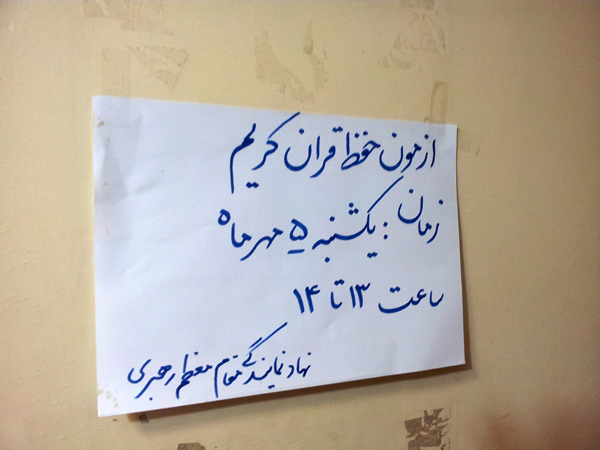 ازمون حفظ قران کریم
زمان : یکشنبه ۵ مهر ماه
ساعت ۱۳ تا ۱۴
نهاد نمایندگی مقام معظم رهبری